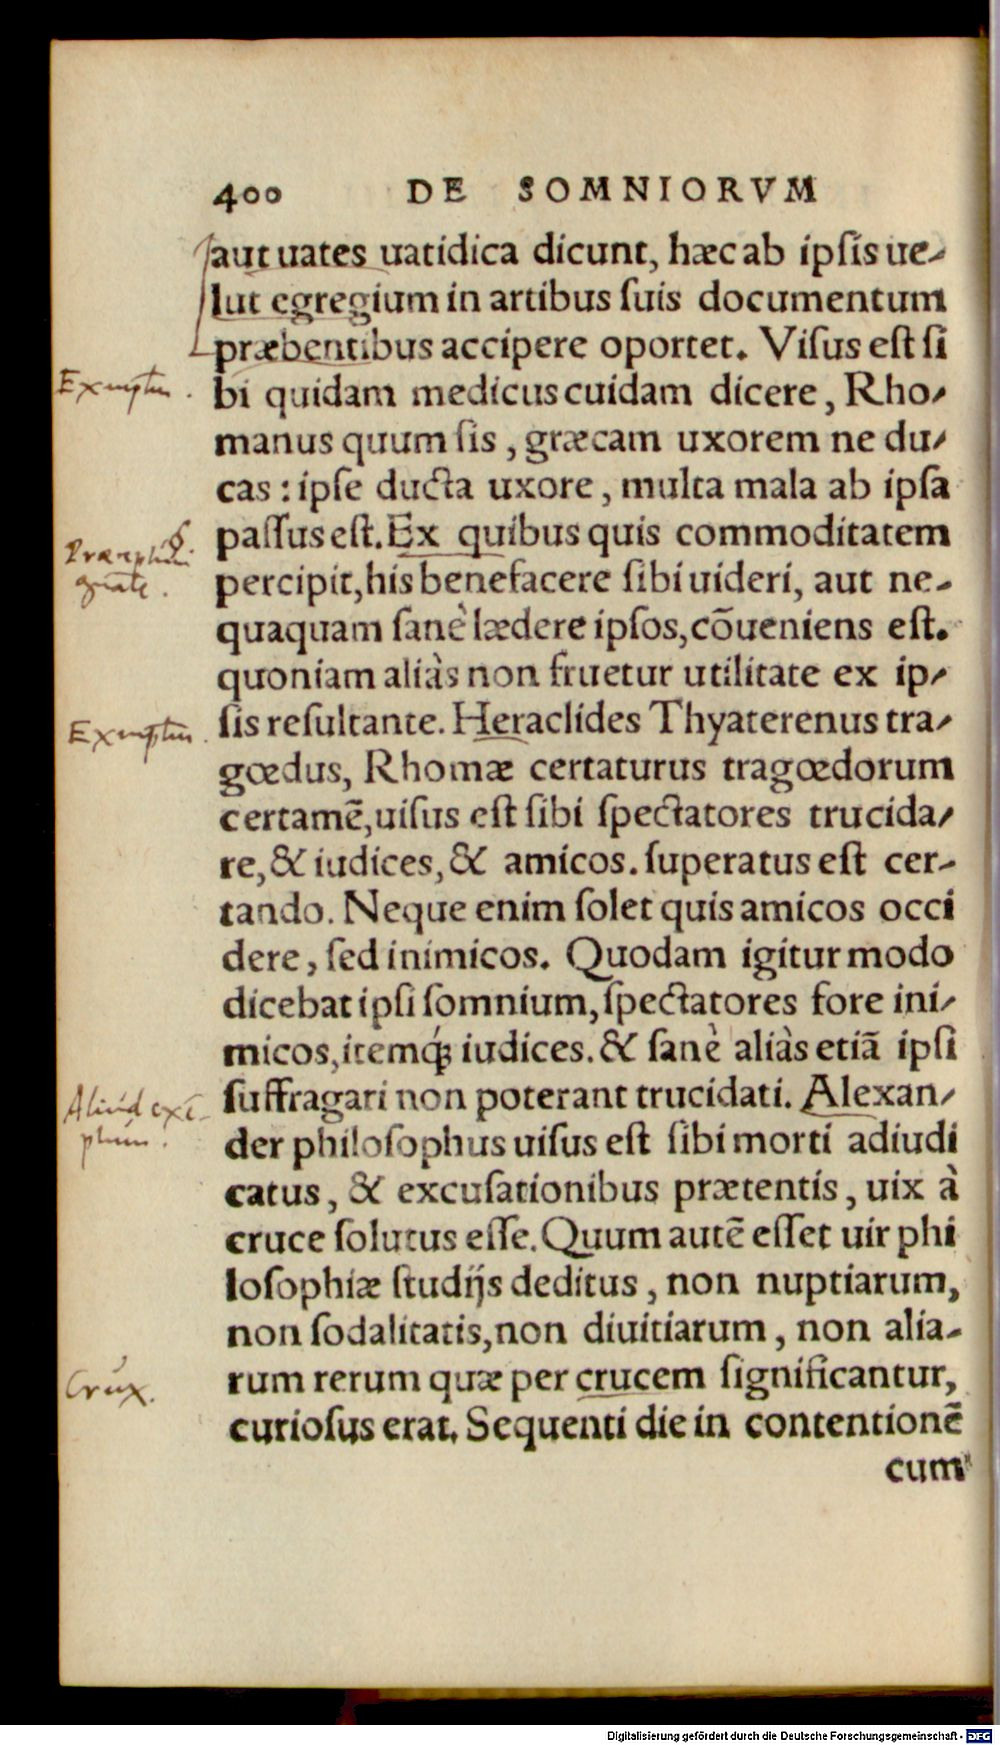 400 DE SOMNIORVM
aut uates uatidica dicunt, hæc ab ipſis ue-
lut egregium in artibus ſuis documentum
præbentibus accipere oportet. Viſus eſt ſi
Exemplum.
bi quidam medicus cuidam dicere, Rho-
manus quum ſis, græcam uxorem ne du-
cas: ipſe ducta uxore, multa mala ab ipſa
paſſus eſt. Ex quibus quis commoditatem
percipit, his benefacere ſibi uideri, aut ne-
quaquam ſanè lædere ipſos, cōueniens eſt.
quoniam aliàs non fruetur utilitate ex ip-
Exemplum.
ſis reſultante. Heraclides Thyaterenus tra-
gœdus, Rhomæ certaturus tragœdorum
certamē, uiſus eſt ſibi ſpectatores trucida-
re, & iudices, & amicos. ſuperatus eſt cer-
tando. Neque enim ſolet quis amicos occi
dere, ſed inimicos. Quodam igitur modo
dicebat ipſi ſomnium, ſpectatores fore ini-
micos, itemq́; iudices. & ſanè aliàs etiā ipſi
Aliud exē-
plum.
ſuffragari non poterant trucidati. Alexan-
der philoſophus uiſus eſt ſibi morti adiudi
catus, & excuſationibus prætentis, uix à
cruce ſolutus eſſe. Quum autē eſſet uir phi
loſophiæ ſtudijs deditus, non nuptiarum,
non ſodalitatis, non diuitiarum, non alia-
Crux.
rum rerum quæ per crucem ſignificantur,
curioſus erat. Sequenti die in contentionē
cum
Digitalisierung gefördert durch die Deutsche Forschungsgemeinschaft - DFG